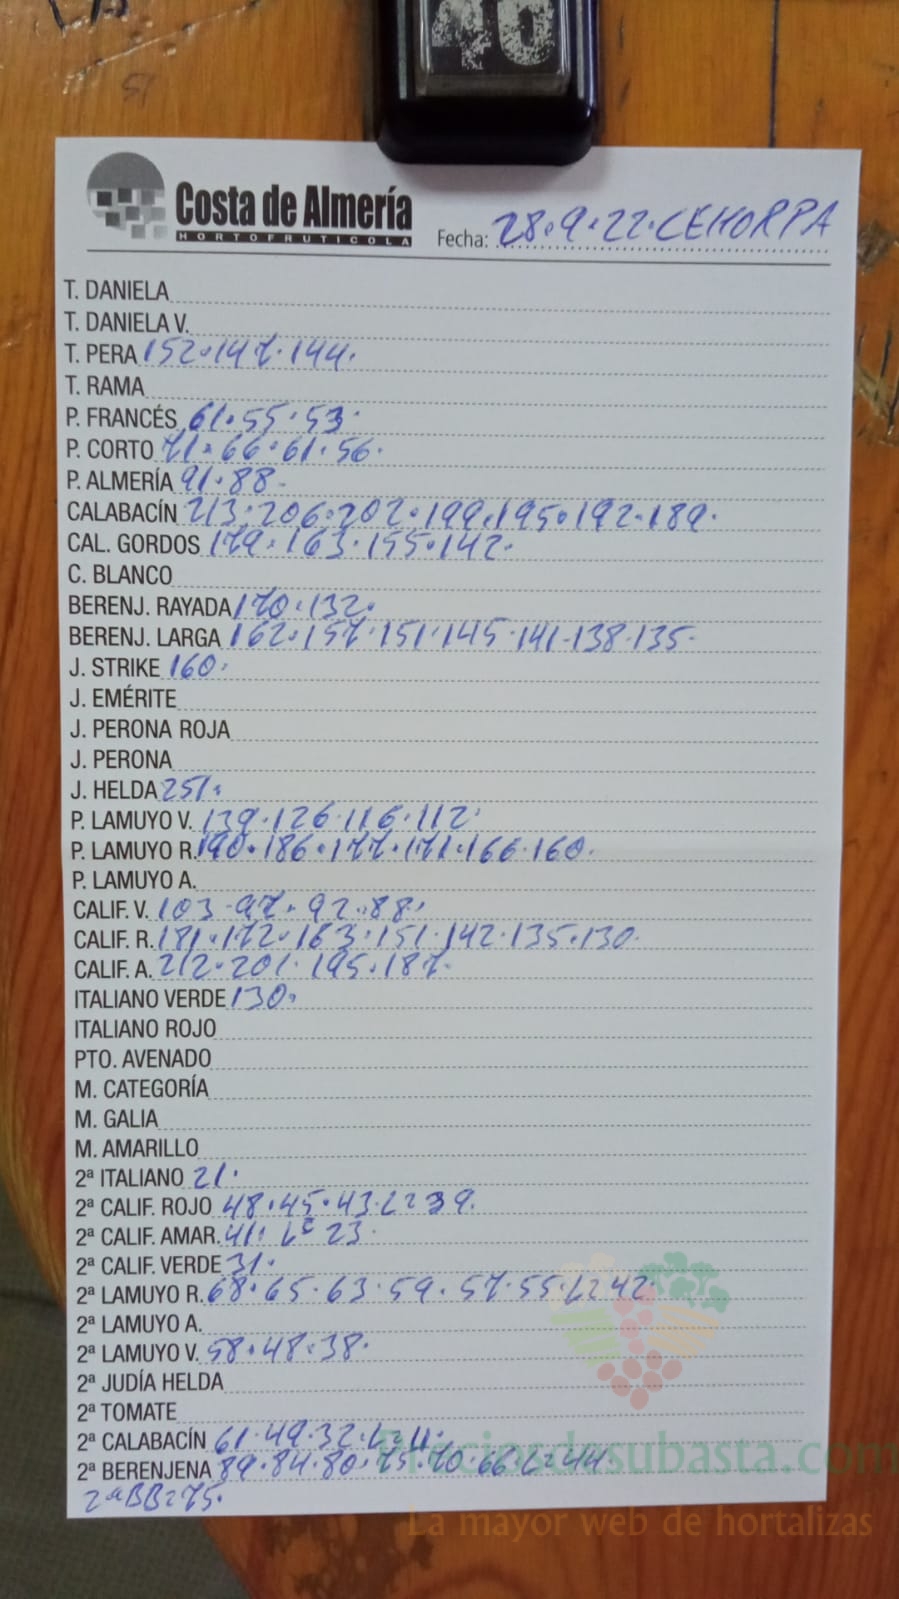 40
Costa de Almería
HORTOFRUTICOLA
Fecha: 28.9.22.CEHORPA
T. DANIELA
T. DANIELA V.
T. PERA 152.147.144.
T. RAMA
P. FRANCÉS 61.55.53.
P. CORTO 71.66.61.56.
P. ALMERÍA 91.88.
CALABACÍN 213.206.202.199.195.192.189.
CAL. GORDOS 179.163.155.142.
C. BLANCO
BERENJ. RAYADA 170.132.
BERENJ. LARGA 162.157.151.145.141-138.135-
J. STRIKE 160.
J. EMÉRITE
J. PERONA ROJA
J. PERONA
J. HELDA 251.
P. LAMUYO V. 139.126.116.112.
P. LAMUYO R. 190.186.177.171.166.160.
P. LAMUYO A.
CALIF. V. 103-97.92.88.
CALIF. R. 181.172.163.151.142.135.130.
CALIF. A. 212.201.195.187.
ITALIANO VERDE 130.
ITALIANO ROJO
PTO. AVENADO
M. CATEGORÍA
M. GALIA
M. AMARILLO
2ª ITALIANO 21.
2ª CALIF. ROJO 48.45.43. 39.
2ª CALIF. AMAR. 41. 23.
2ª CALIF. VERDE 31.
2ª LAMUYO R. 68.65.63.59.57.55. 42.
2ª LAMUYO A.
2ª LAMUYO V. 58.48.38.
2ª JUDÍA HELDA
2ª TOMATE
2ª CALABACÍN 61.49.32. 11.
2ª BERENJENA 89.84.80.75.70.66. 44.
2ªBB=75.
Preciosdesubasta.com
La mayor web de hortalizas